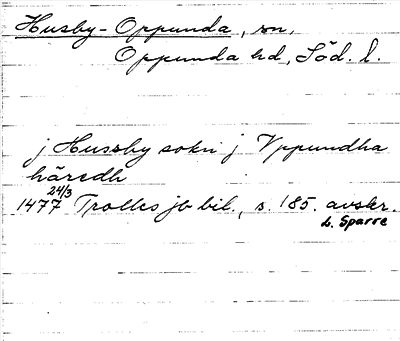 Husby-Oppunda, sn,
Oppunda hd, Söd. l.
j Hussby sokn j Vppundha
häredh
24/3
1477 Trolles jb bil., s. 185. avskr.
L. Sparre